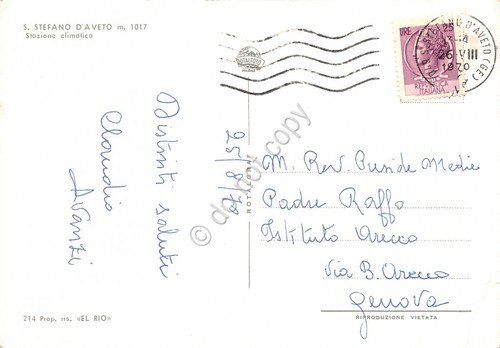 S. STEFANO D'AVETO m. 1017
Stazione climatica
Distinti saluti
Claudio
Avanzi
25/8/70
214 Prop. ris. «EL RIO»
ROTALFOTO
ROTALFOTO
LIRE 25
REPUBBLICA
ITALIANA
S. STEFANO D'AVETO (GE)
26 VIII
1970
M. Rev. Preside Medie
Padre Raffo
Istituto Arecco
via B. Arecco
Genova
RIPRODUZIONE VIETATA
do not copy